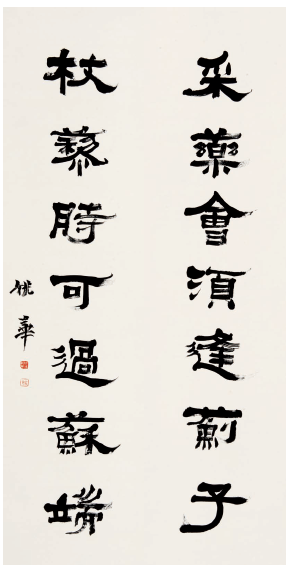 采藥會須逢薊子
杖藜時可過蘇端
姚華